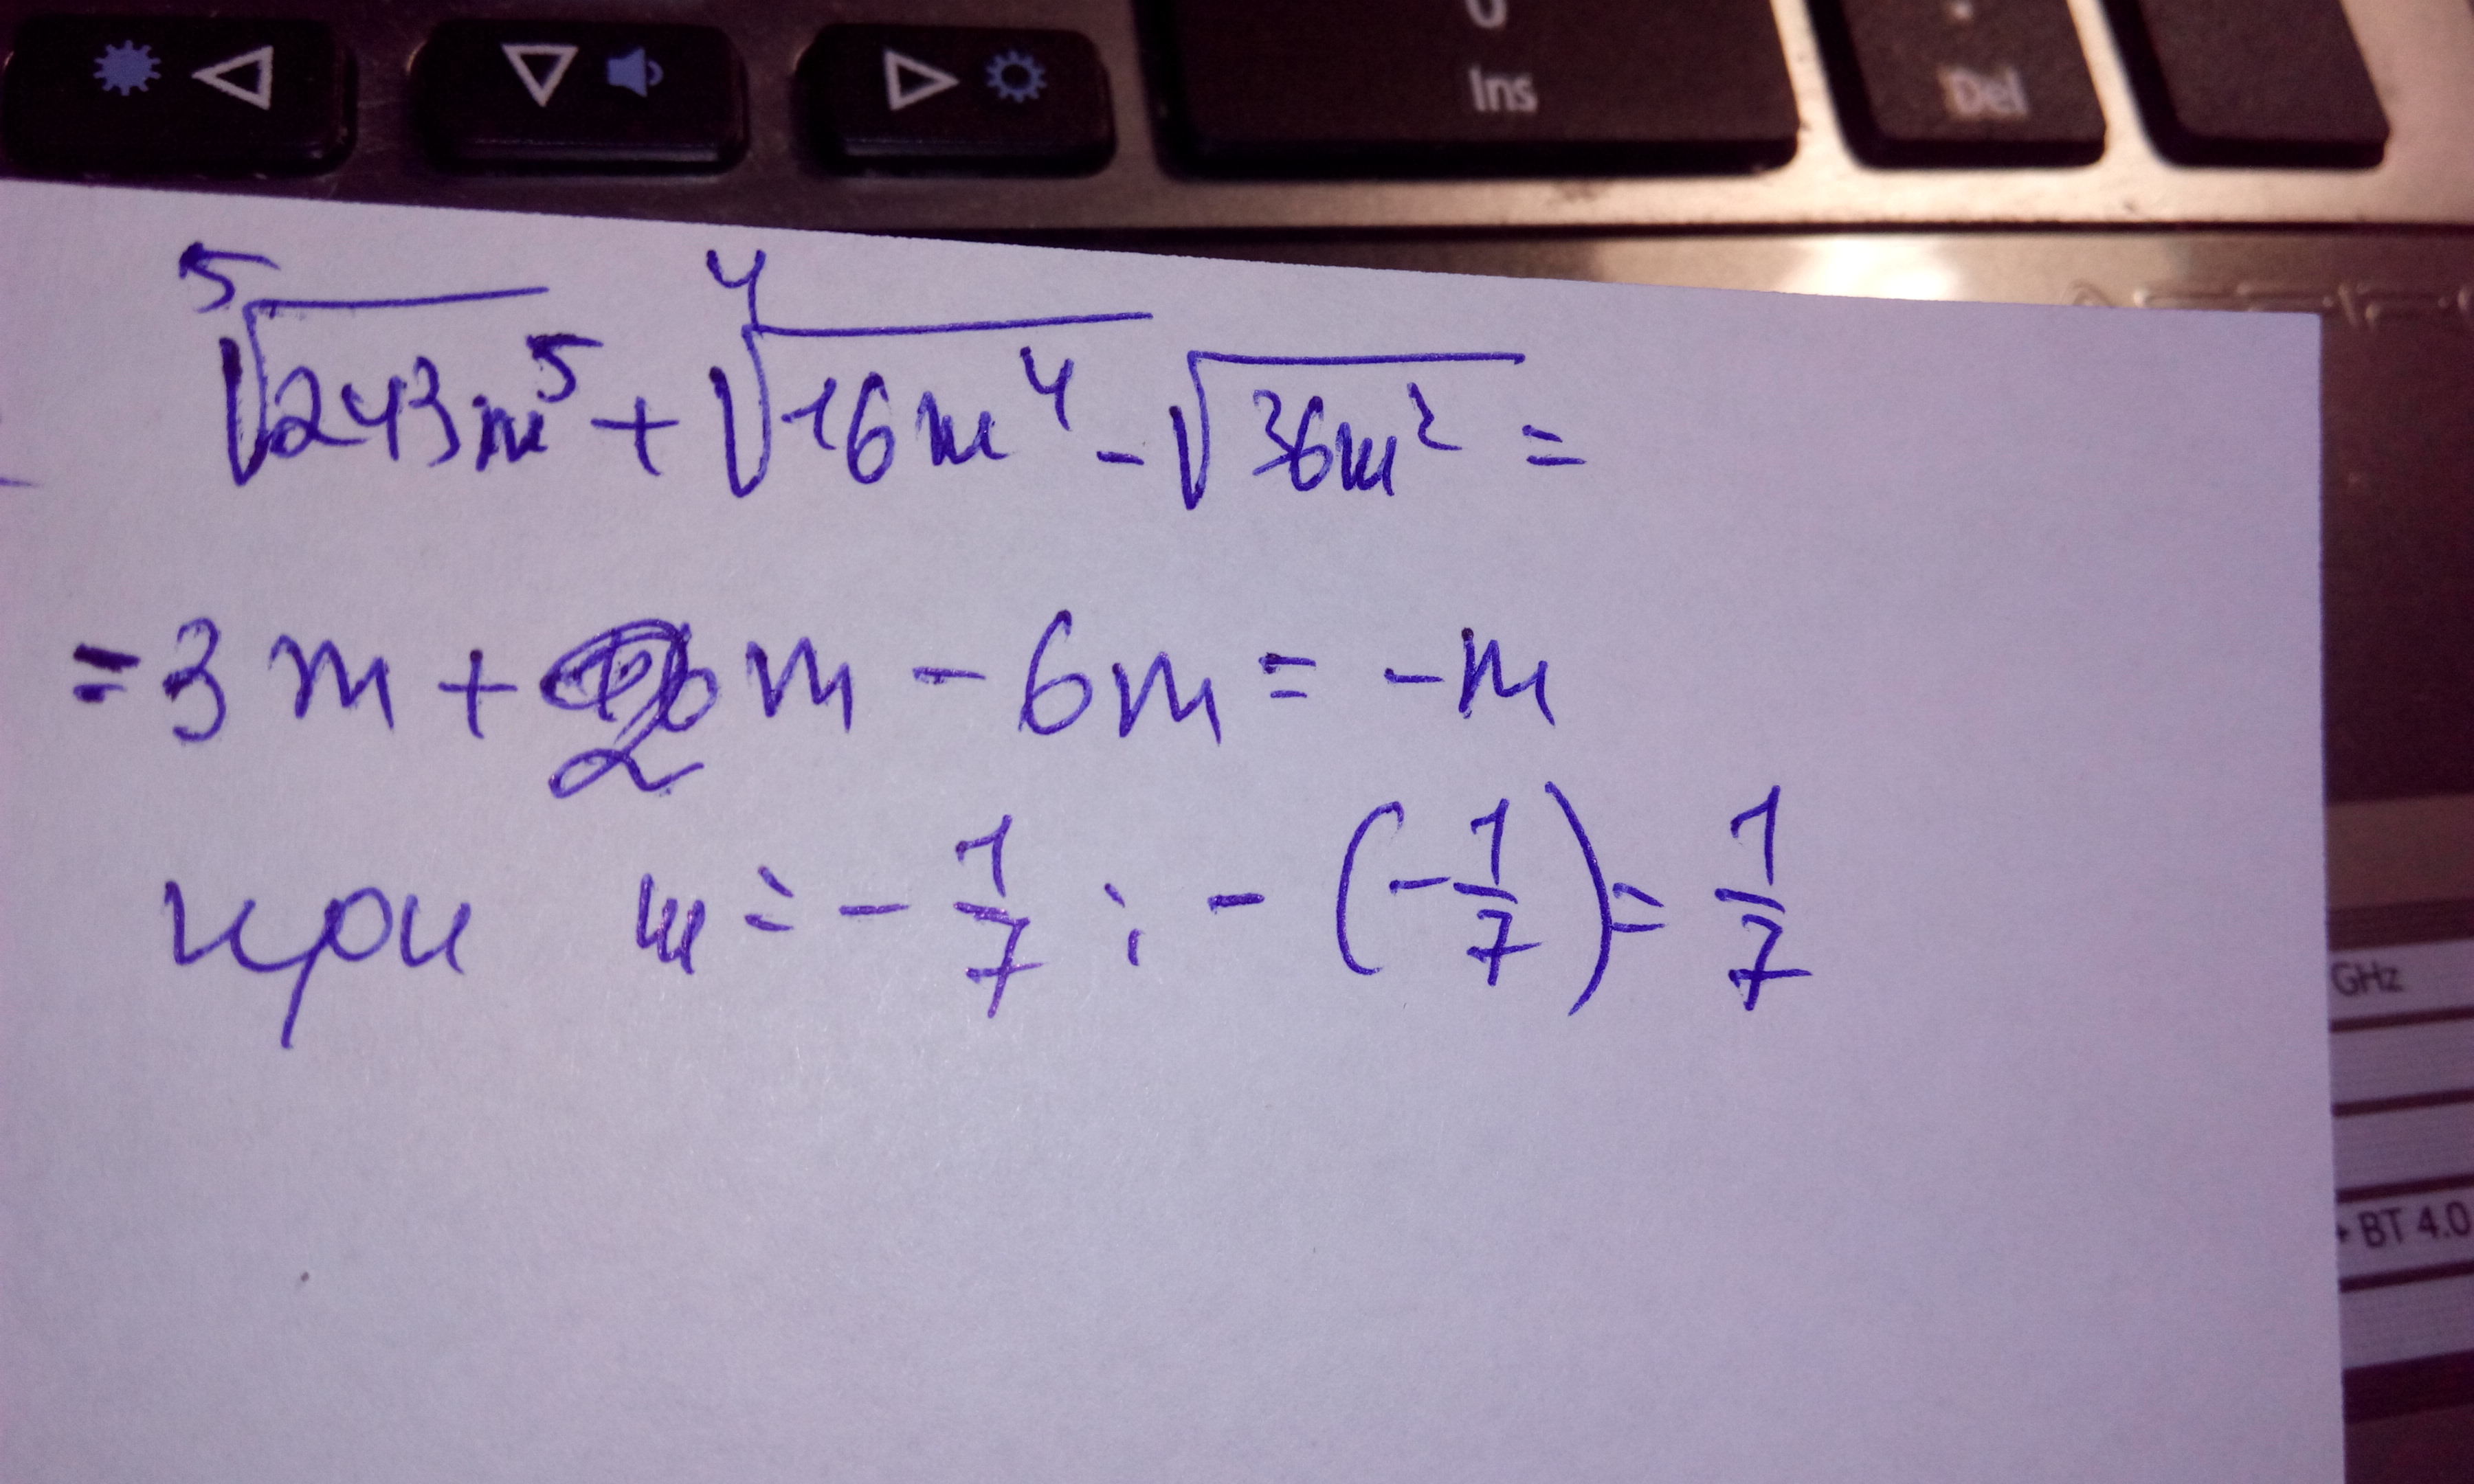 0
Ins
Del
⁵√243m⁵ + ⁴√16m⁴ - √36m² =
= 3m + 2m - 6m = -m
при m = - 1/7 ; - (- 1/7) = 1/7
GHz
BT 4.0